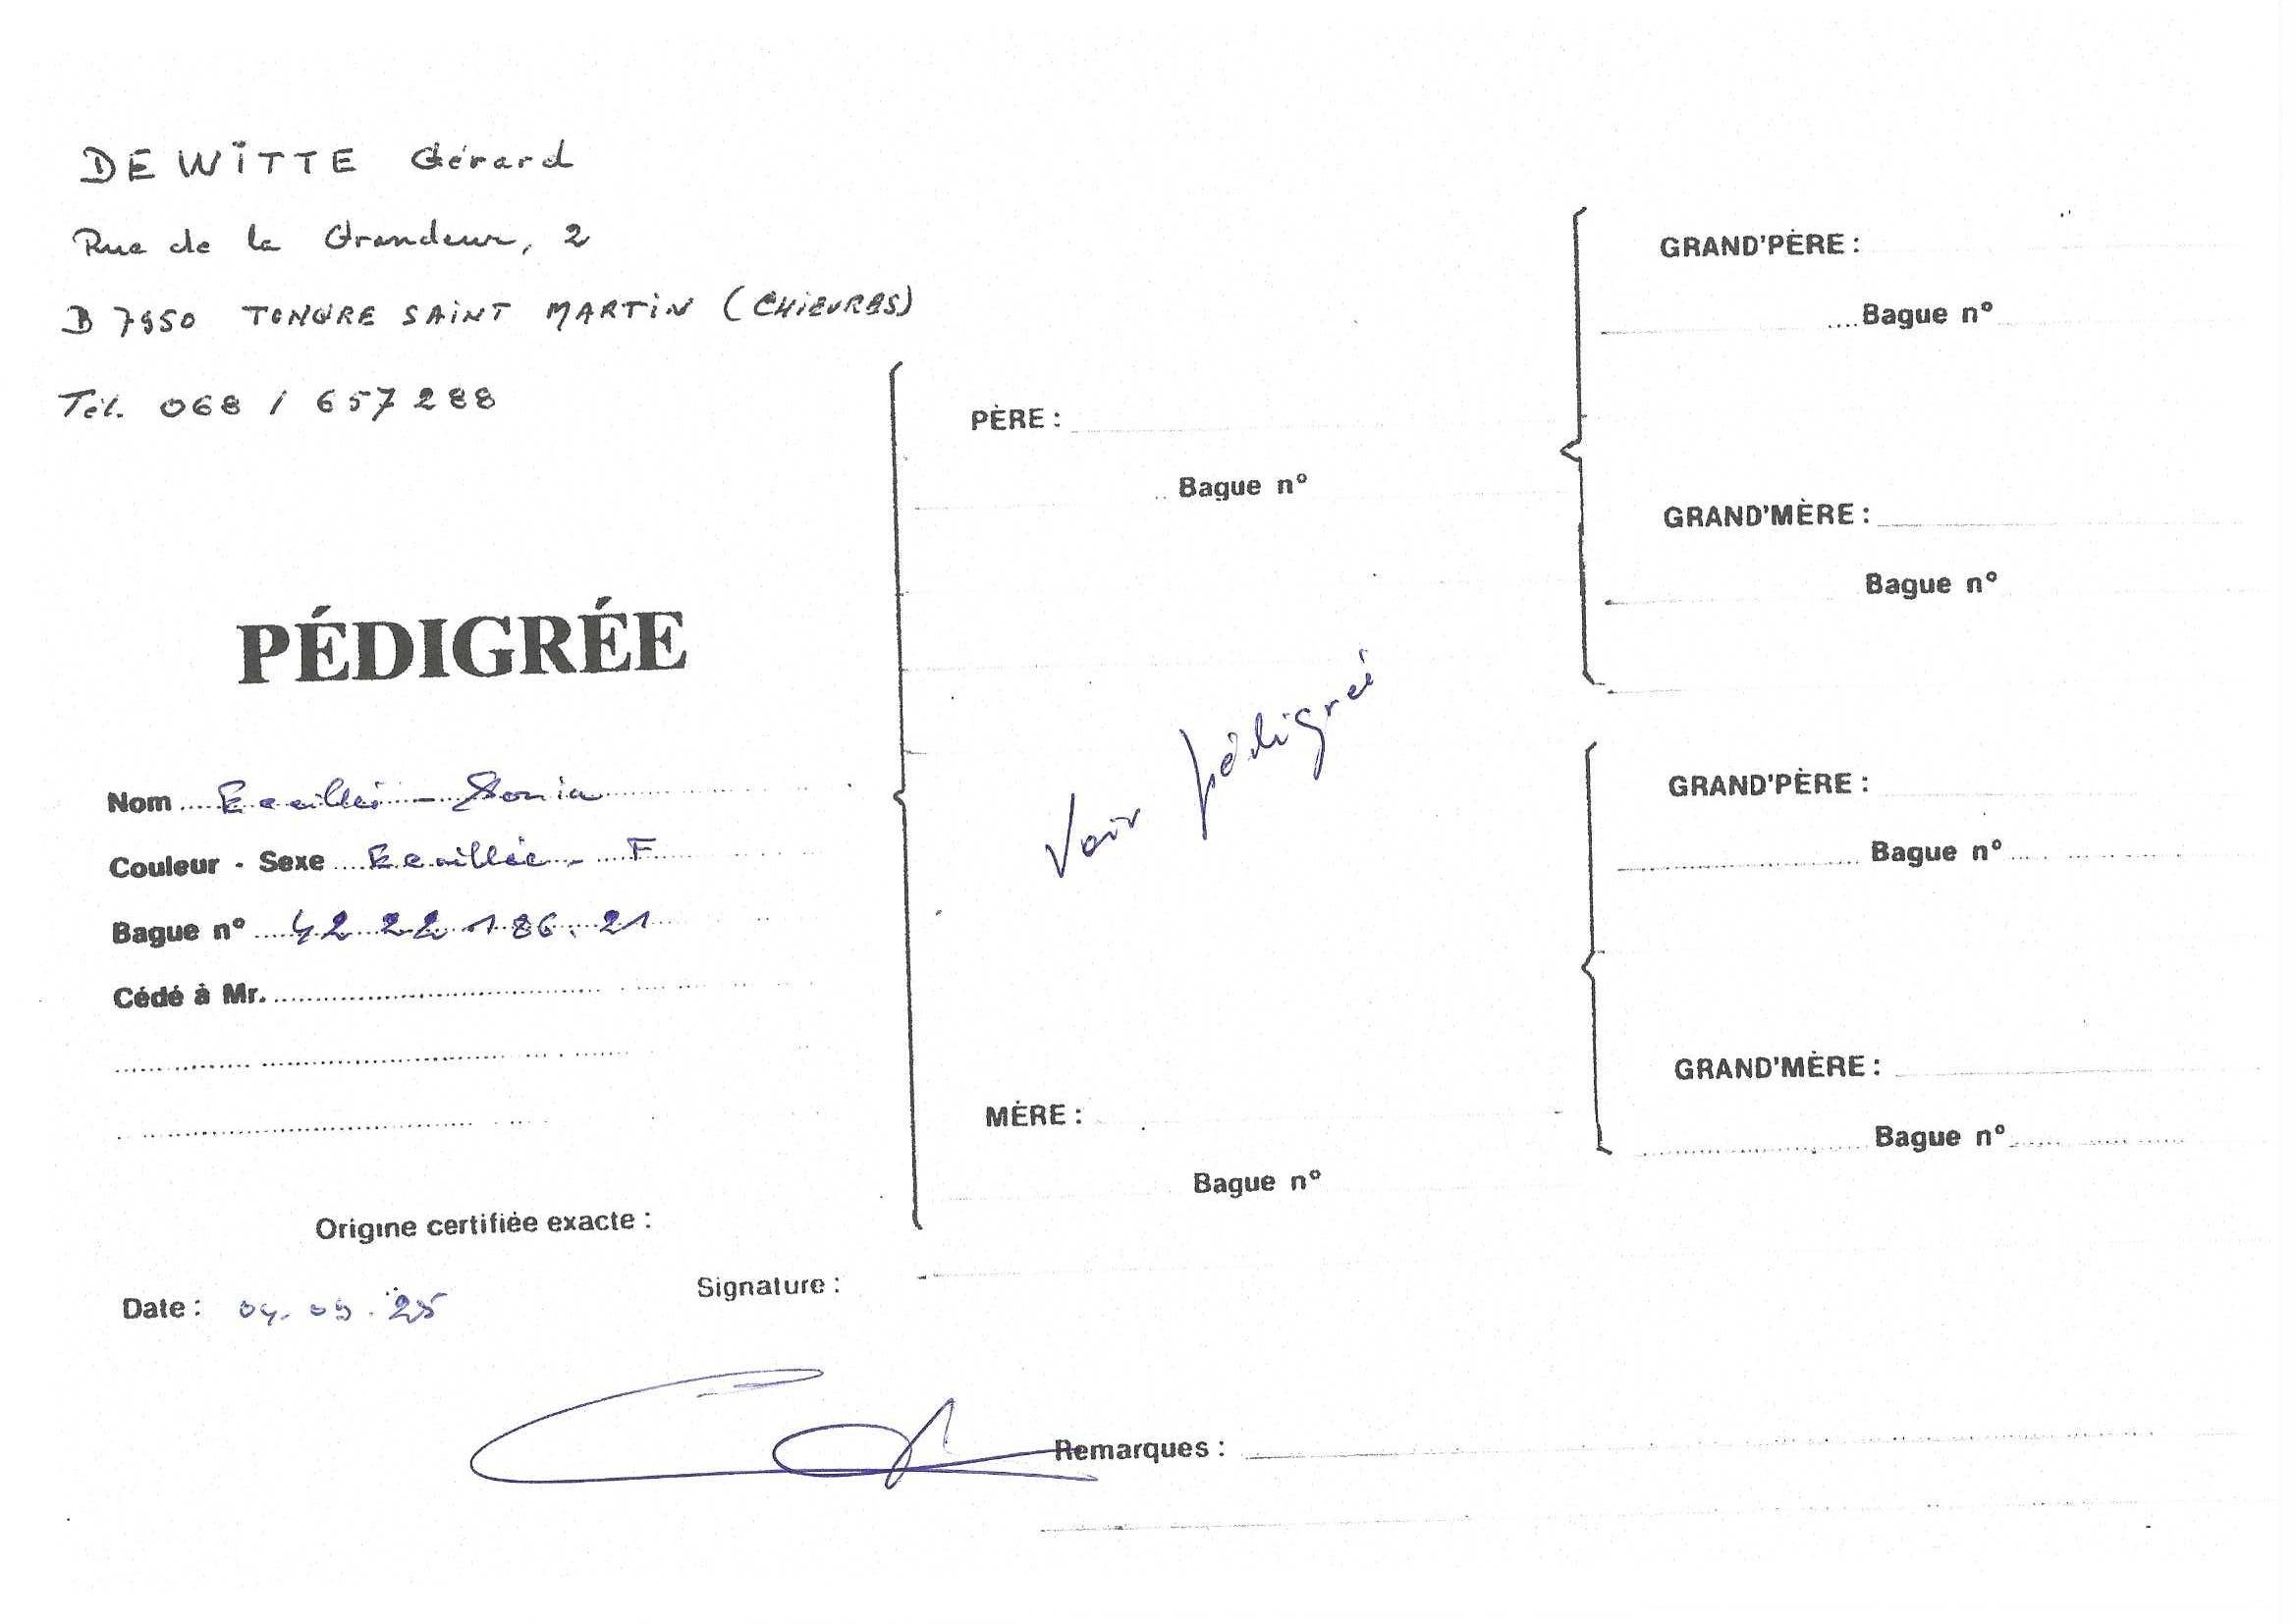 DE WITTE Gérard
Rue de la Grandeur, 2
B 7950 TONGRE SAINT MARTIN (CHIEVRES)
Tél. 068 / 657288
PÉDIGRÉE
Nom Ecaillé - Sonia
Couleur - Sexe Ecaillée - F
Bague n° 4222186.21
Cédé à Mr.
Origine certifiée exacte :
Date : 04.09.25
Signature :
PÈRE :
Bague n°
Voir pédigréé
MÈRE :
Bague n°
GRAND'PÈRE :
Bague n°
GRAND'MÈRE :
Bague n°
GRAND'PÈRE :
Bague n°
GRAND'MÈRE :
Bague n°
Remarques :